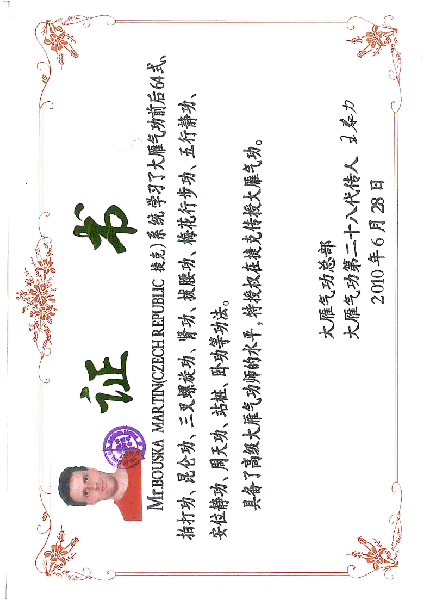 证书
Mr.BOUSKA MARTIN(CZECH REPUBLIC 捷克)系统学习了大雁气功前后64式、
拍打功、昆仑功、三叉螺旋功、肾功、拔腰功、梅花行步功、五行静功、
安位静功、周天功、站桩、卧功等功法。
具备了高级大雁气功师的水平，特授权在捷克传授大雁气功。
大雁气功总部
大雁气功第二十八代传人
2010年6月28日